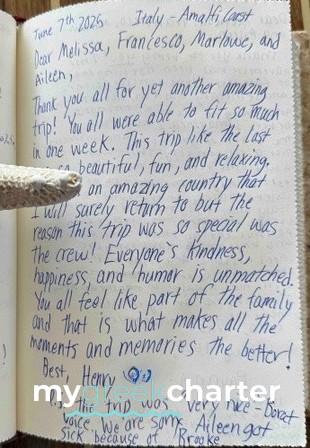 June 7th 2025 Italy - Amalfi Coast
Dear Melissa, Francesco, Marlowe, and
Aileen,
Thank you all for yet another amazing
trip! You all were able to fit so much
in one week. This trip like the last
so beautiful, fun, and relaxing.
an amazing country that
I will surely return to but the
reason this trip was so special was
the crew! Everyone's kindness,
happiness, and humor is unmatched.
You all feel like part of the family
and that is what makes all the
moments and memories the better!
Best, Henry
mygreekcharter
The trip was very nice - Borat
voice. We are some Aileen got
sick because of Brooke